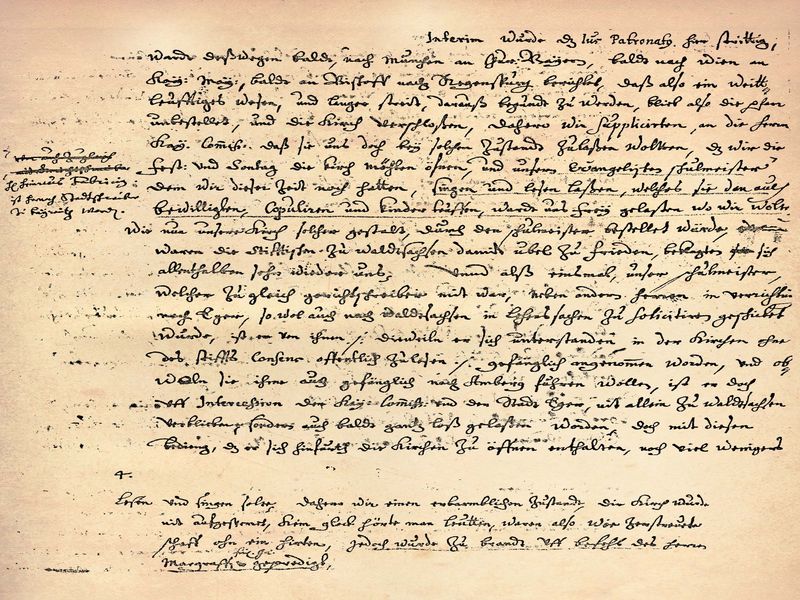 Interim wurde dz Jus Patronatg hier streittig,
wardt deßwegen baldt nach München an Chur Bayern, baldt nach Wien an
Kay: May: baldt an Bischoff nach Regenspurg berichtet, daß also ein weitt-
leufftiges wesen, und langer streit, darauß begundt zu werden, blieb also die pfarr
unbestellet, und die Kirch verschloßen, dahero wir supplicirten, an die herrn
Kay. Commiss. daß sie uns doch bey solchem Zustandt zulaßen wolten, dz wir die
fest: und Sontag die kirch möchten öfnen, und unsern Evangelischen schulmeister
dem wir dieser Zeit noch hatten, singen und lesen laßen, welches sie den auch
bewilligten, Copuliren und kinder tauffen, wardt uns frey gelaßen wo wir wolten
Wie nun unsere Kirch solcher gestalt, durch den schulmeister bestellet wurde,
waren die Stifftischen zu Waldsachsen damit übel zu frieden, beklagten sich
allenthalben sehr wieder uns, Unnd alß einsmal, unser schulmeister,
welcher zugleich gerichtschreiber mit war, neben andern herren in verrichtung
nach Eger, so wol auch nach Waldsachsen in Lehensachen zu solicitiren geschickt
wurde, ist er von ihnen /: dieweiln er sich unterstanden in der Kirchen ohne
des stiffts Consens offentlich zu lesen :/ gefänglich angenommen worden, und ob-
Woln sie ihme auch gefänglich nach Amberg führen wollen, ist er doch
Uff Intercession der Kay: Commiss: und der Stadt Eger, nit allein zu Waldsachsen
verblieben sondern auch baldt gantz loß gelaßen worden, doch mit diesem
beding, dz er sich hinfürth die Kirchen zu öffnen enthalten, noch viel weniger
4.
Lesen und singen solte, dahero wir einen erbarmblichen Zustandt, die Kirch wurde
nit aufgesperret, kein glock hörte man leutten, waren also wie zerstreute
schaff ohn ein hirten, jedoch wurde zu brandt uff befehl des herrn
Margraffen geprediget,